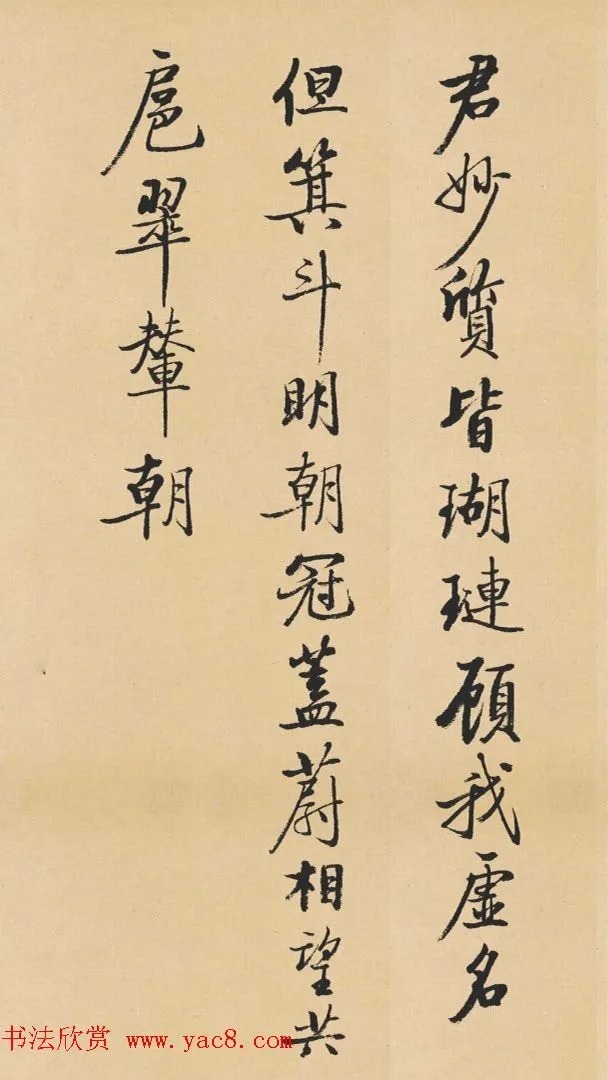 君妙質皆瑚璉顧我虛名
但箕斗明朝冠蓋蔚相望共
扈翠輦朝
书法欣赏 www.yac8.com